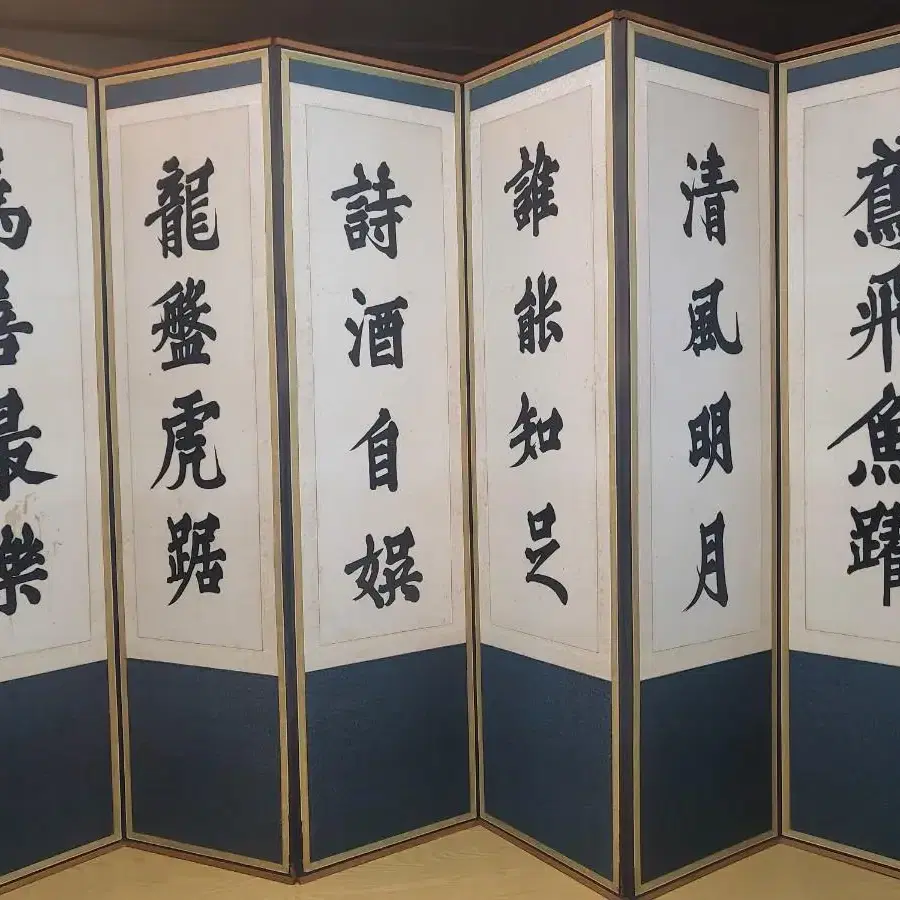 鳶飛魚躍
清風明月
誰能知足
詩酒自娛
龍盤虎踞
為善最樂